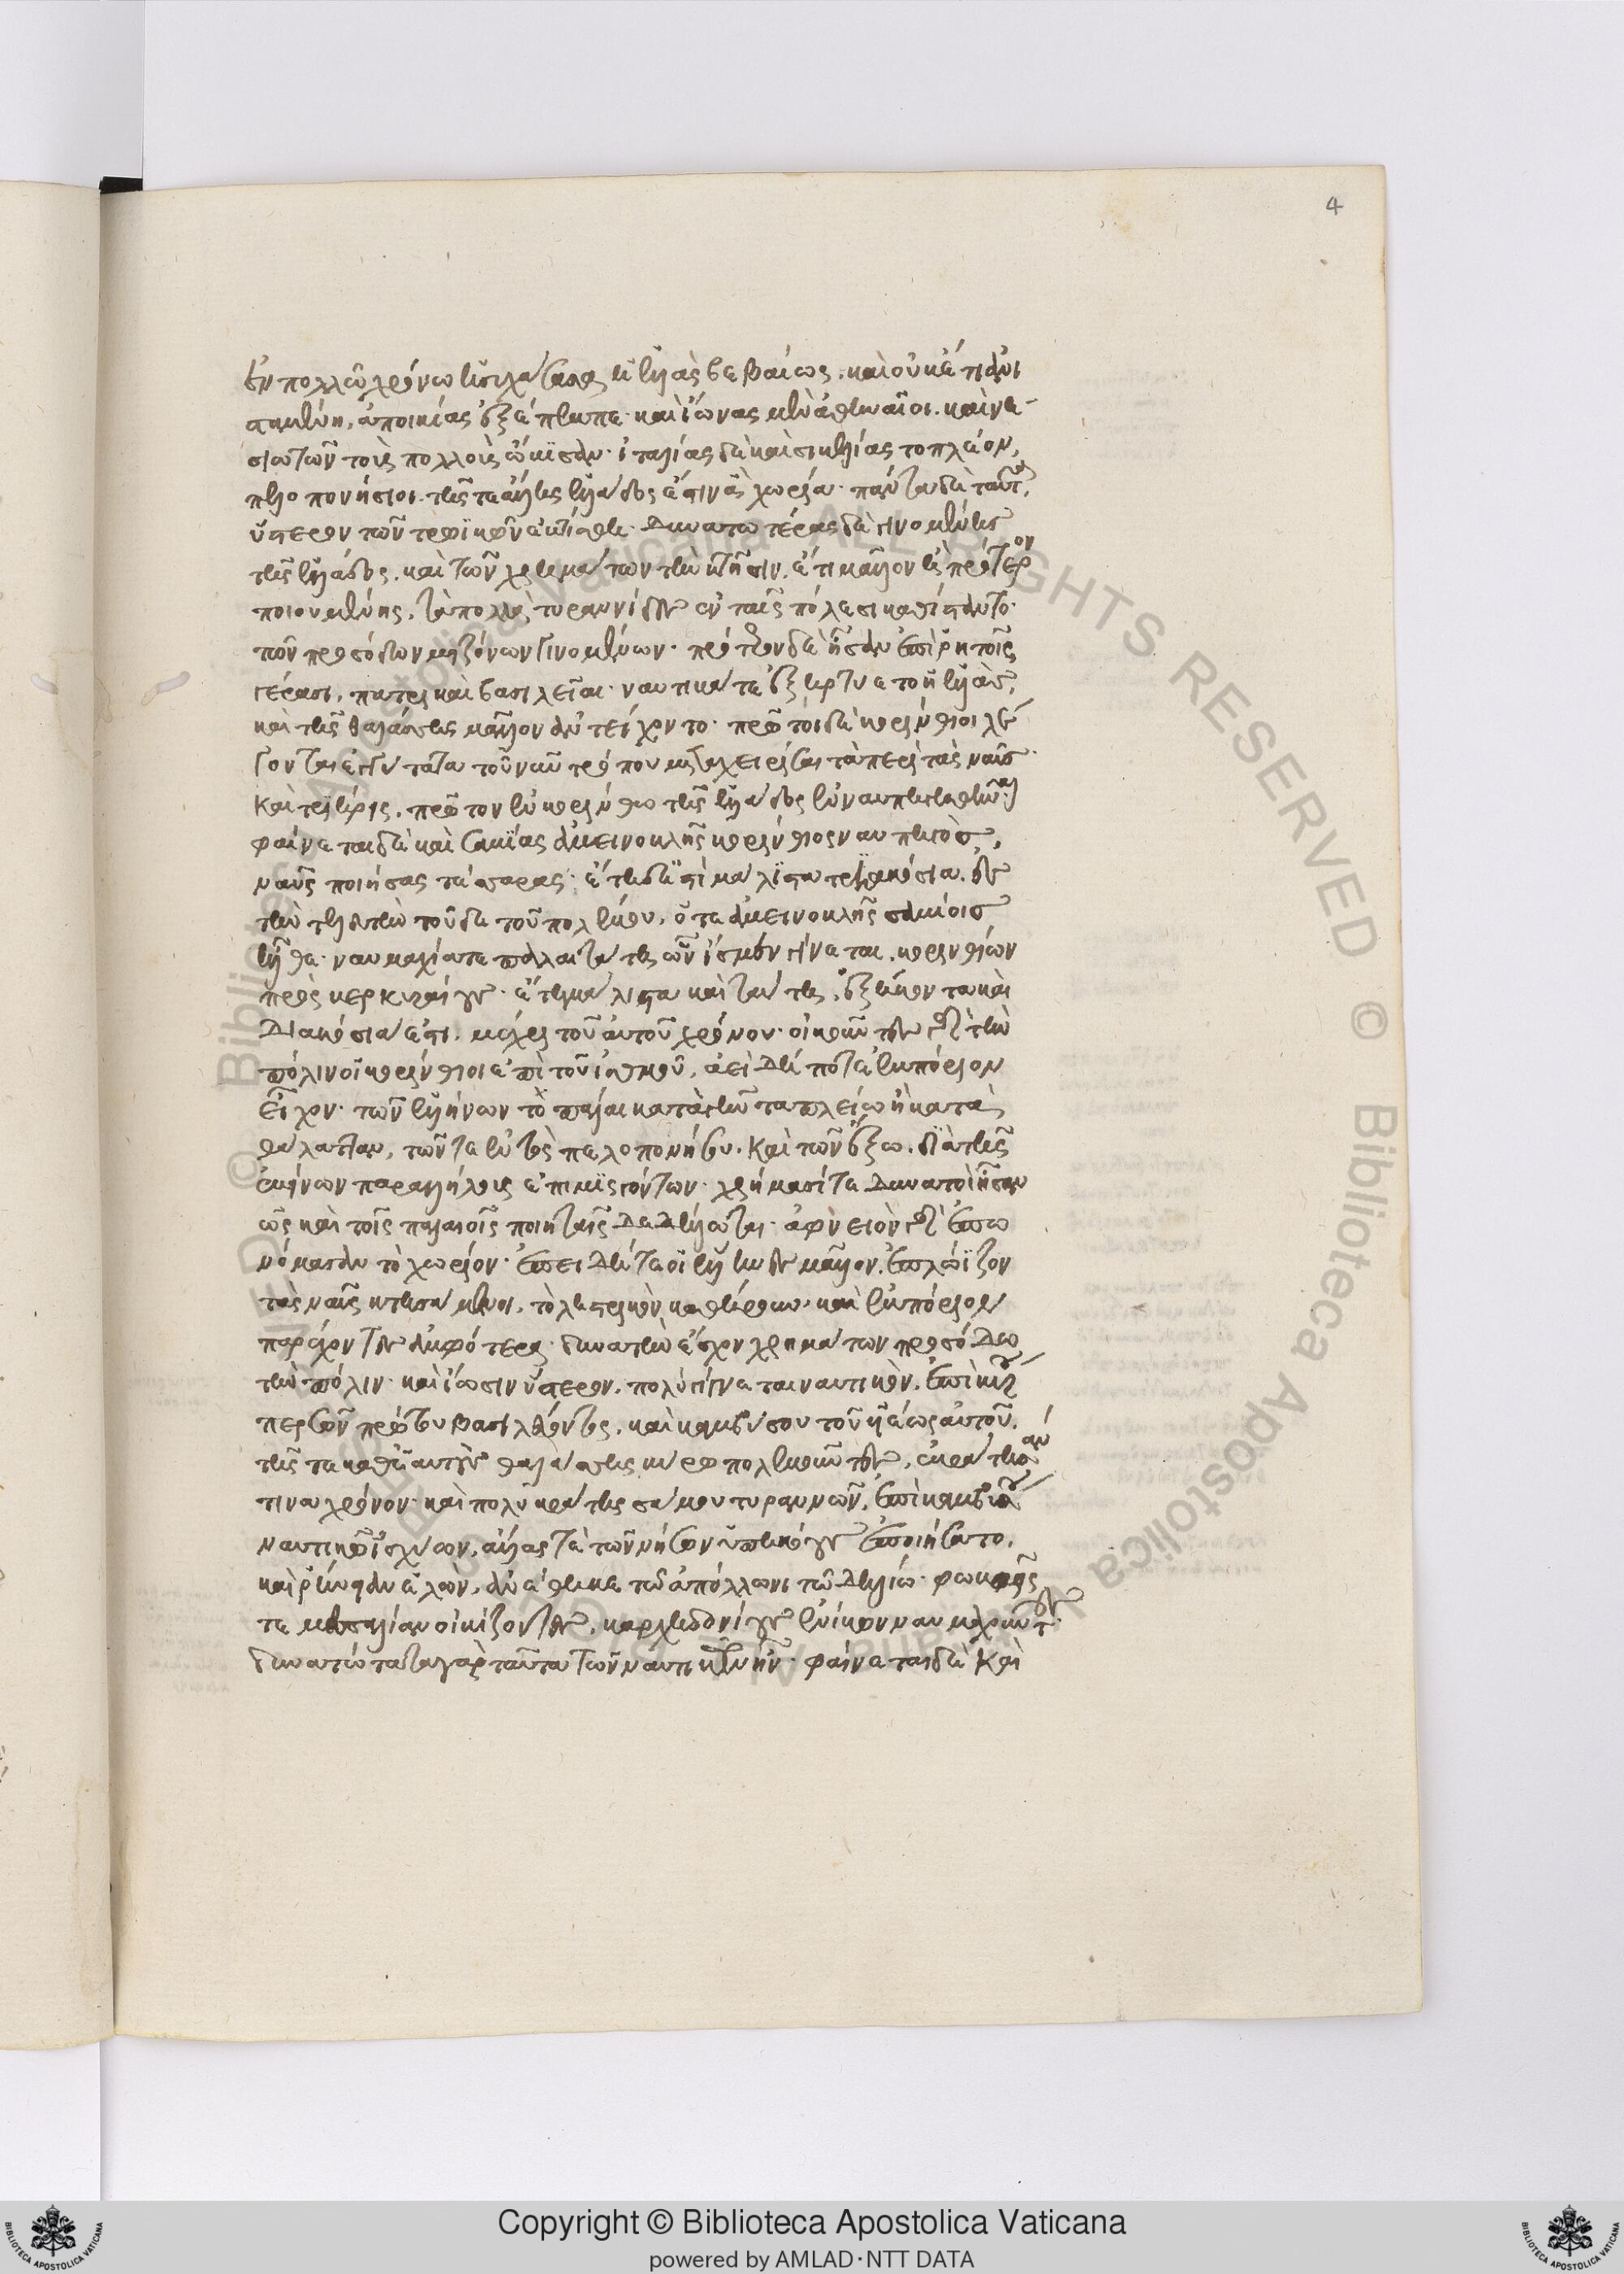 4
ἐν πολλῶ χρόνω ἡσυχάσασα ἡ ἑλλὰς βεβαίως. καὶ οὐκέτι ἀνι
σταμένη, ἀποικίας ἐξέπεμπε· καὶ ἴωνας μὲν ἀθηναῖοι. καὶ νη-
σιωτῶν τοὺς πολλοὺς ὤκισαν· ἰταλίας δὲ καὶ σικελίας το πλεῖον,
πελοπονήσιοι. τῆς τε ἄλλης ἑλλάδος ἔστιν ἃ χωρία· πάντα δὲ ταῦτα,
ὕστερον τῶν τρωϊκῶν ἐκτίσθη. δυνατωτέρας δὲ γινομένης
τῆς ἑλλάδος. καὶ τῶν χρημάτων τὴν κτῆσιν, ἔτι μᾶλλον ἢ πρότερον
ποιουμένης, τὰ πολλὰ τυραννίδες ἐν ταῖς πόλεσι καθίσταντο·
τῶν προσόδων μειζόνων γινομένων· πρότερον δὲ ἦσαν ἐπὶ ῥητοῖς
γέρασι, πατρικαὶ βασιλεῖαι· ναυτικά τε ἐξηρτύετο ἡ ἑλλὰς,
καὶ τῆς θαλάσσης μᾶλλον ἀντείχοντο· πρῶτοι δὲ κορίνθιοι λέ
γονται ἐγγύτατα τοῦ νῦν τρόπου μεταχειρίσαι τὰ περὶ τὰς ναῦς·
καὶ τριήρεις, πρῶτον ἐν κορίνθω τῆς ἑλλάδος ἐνναυπηγηθῆναι
φαίνεται δὲ καὶ σαμίοις ἀμεινοκλῆς κορίνθιος ναυπηγὸς,
ναῦς ποιήσας τέσσαρας· ἔτη δὲ ἐστὶ μάλιστα τριακόσια. ἐς
τὴν τελευτὴν τοῦδε τοῦ πολέμου, ὅτε ἀμεινοκλῆς σαμίοις
ἦλθε· ναυμαχία τε παλαιτάτη ὧν ἴσμεν γίνεται, κορινθίων
πρὸς κερκυραίους· ἔτη μάλιστα καὶ ταύτη, ἐξήκοντα καὶ
διακόσια ἐστι. μέχρι τοῦ αὐτοῦ χρόνου· οἰκοῦντες γὰρ τὴν
πόλιν οἱ κορίνθιοι ἐπὶ τοῦ ἰσθμοῦ, ἀεὶ δή ποτε ἐμπόριον
εἶχον· τῶν ἑλλήνων τὸ πάλαι κατὰ γῆν τα πλείω ἢ κατὰ
θάλατταν, τῶν τε ἐντὸς πελοπονήσου. καὶ τῶν ἔξω. διὰ τῆς
ἐκείνων παραλλήλους ἐπιμισγόντων· χρήμασί τε δυνατοὶ ἦσαν
ὡς καὶ τοῖς παλαιοῖς ποιηταῖς δεδήλωται· ἀφνειὸν γὰρ ἐπω
νόμασαν τὸ χωρίον· ἐπειδή τε οἱ ἕλληνες μᾶλλον, ἐπλώϊζον
τὰς ναῦς κτησάμενοι, τὸ ληστρικὸν καθήρουν· καὶ ἐμπόριον
παρέχοντες ἀμφότερα· δυνατὴν ἔσχον χρημάτων προσόδω
τὴν πόλιν· καὶ ἴωσιν ὕστερον, πολὺ γίνεται ναυτικὸν. ἐπὶ κύρου
περσῶν πρώτου βασιλεύοντος, καὶ καμβύσου τοῦ υἱέως αὐτοῦ.
τῆς τε καθ' ἑαυτοὺς θαλάσσης κύρω πολεμοῦντες, ἐκράτησαν
τινα χρόνον· καὶ πολυκράτης σάμου τυραννῶν. ἐπὶ καμβύσου
ναυτικῶ ἰσχύων, ἄλλας τὲ τῶν νήσων ὑπηκόους ἐποιήσατο.
καὶ ῥήνειαν ἑλὼν, ἀνέθηκε τῶ ἀπόλλωνι τῶ δηλίω· φωκαῆς
τε μασσαλίαν οἰκίζοντες, καρχηδονίους ἐνίκων ναυμαχοῦντες·
δυνατώτατα γὰρ ταῦτα τῶν ναυτικῶν ἦν· φαίνεται δὲ καὶ
Copyright © Biblioteca Apostolica Vaticana
powered by AMLAD·NTT DATA